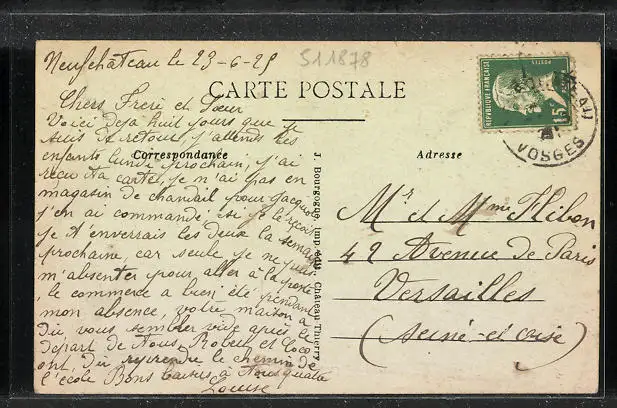 Neufchâteau le 23-6-25
511878
CARTE POSTALE
Chers Frere et Sœur
Voici deja huit jours que je
suis de retour, j'attends les
enfants lundi prochain, j'ai
recu ta carte, je n'ai pas en
magasin de chandail pour Jacquot
j'en ai commandé, si je le reçois
je t'enverrais les deux la semaine
prochaine, car seule je ne puis
m'absenter pour aller à la poste
le commerce a bien été pendant
mon absence, votre maison a
du vous sembler vide après le
départ de tous, Robert et Coco
ont du reprendre le chemin de
l'école Bons baisers à tous quatre
Louise
Correspondance
J. Bourgogne, imp.-édit., Château-Thierry
Adresse
REPUBLIQUE FRANÇAISE
POSTES
15c
VOSGES
Mr et Mme Flibon
42 Avenue de Paris
Versailles
(Seine-et-oise)